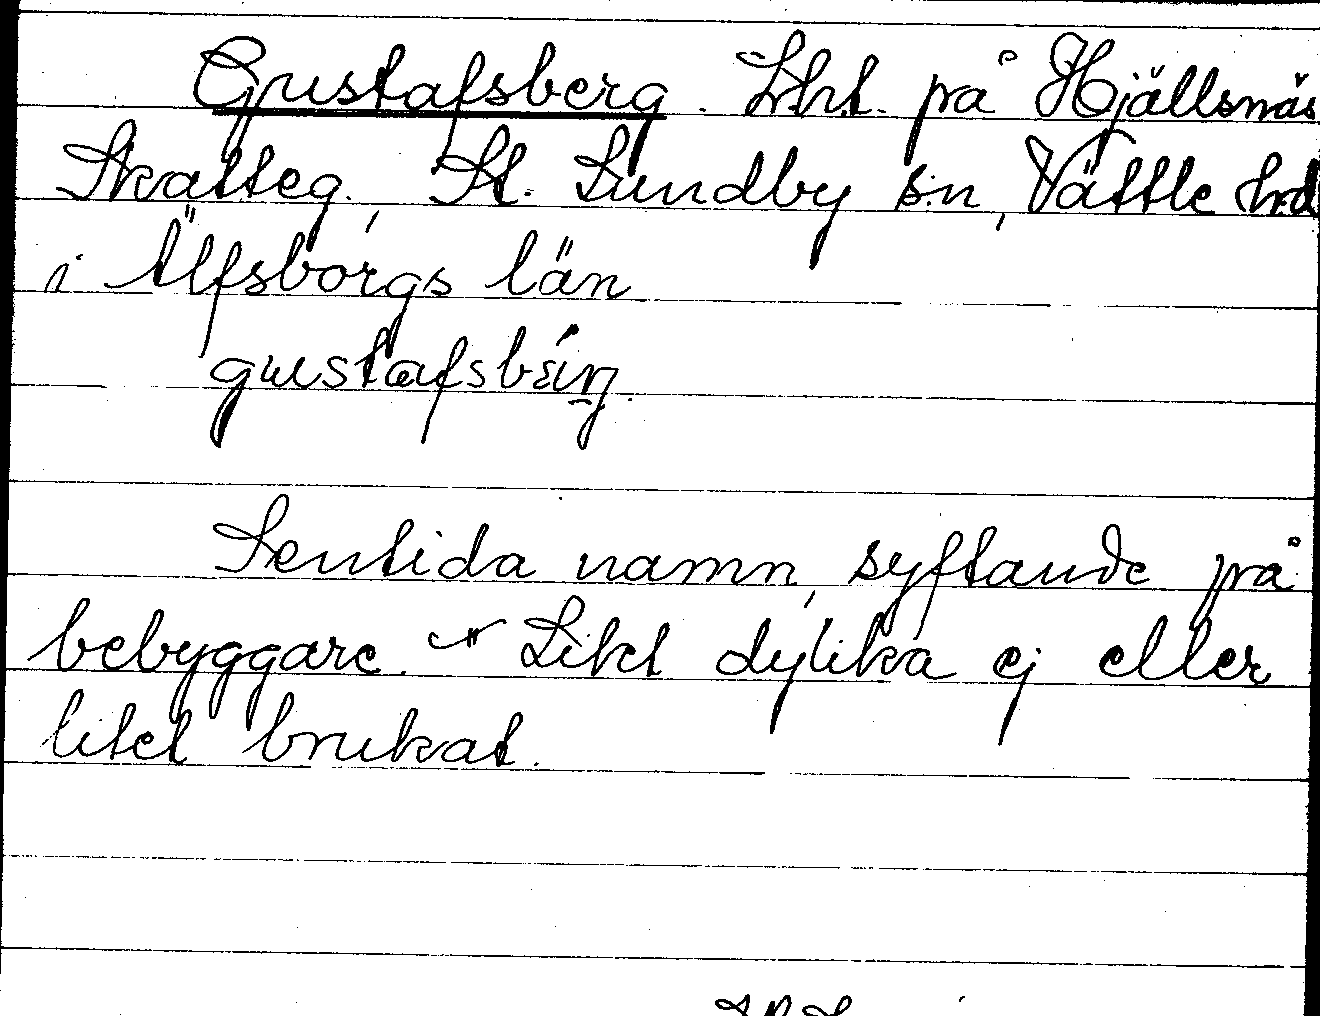 Gustafsberg. Lht. på Hjällsnäs
Skatteg., St. Lundby s:n, Vättle hrd
i Älfsborgs län
gustafsbärj.
Sentida namn, syftande på
bebyggare. Likt dylika ej eller
litet brukat.